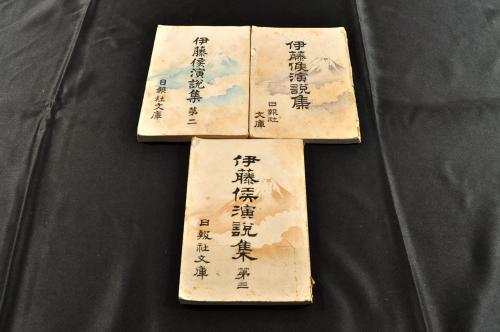 伊藤侯演説集
第二
日報社文庫
伊藤侯演説集
日報社
文庫
伊藤侯演説集
第三
日報社文庫